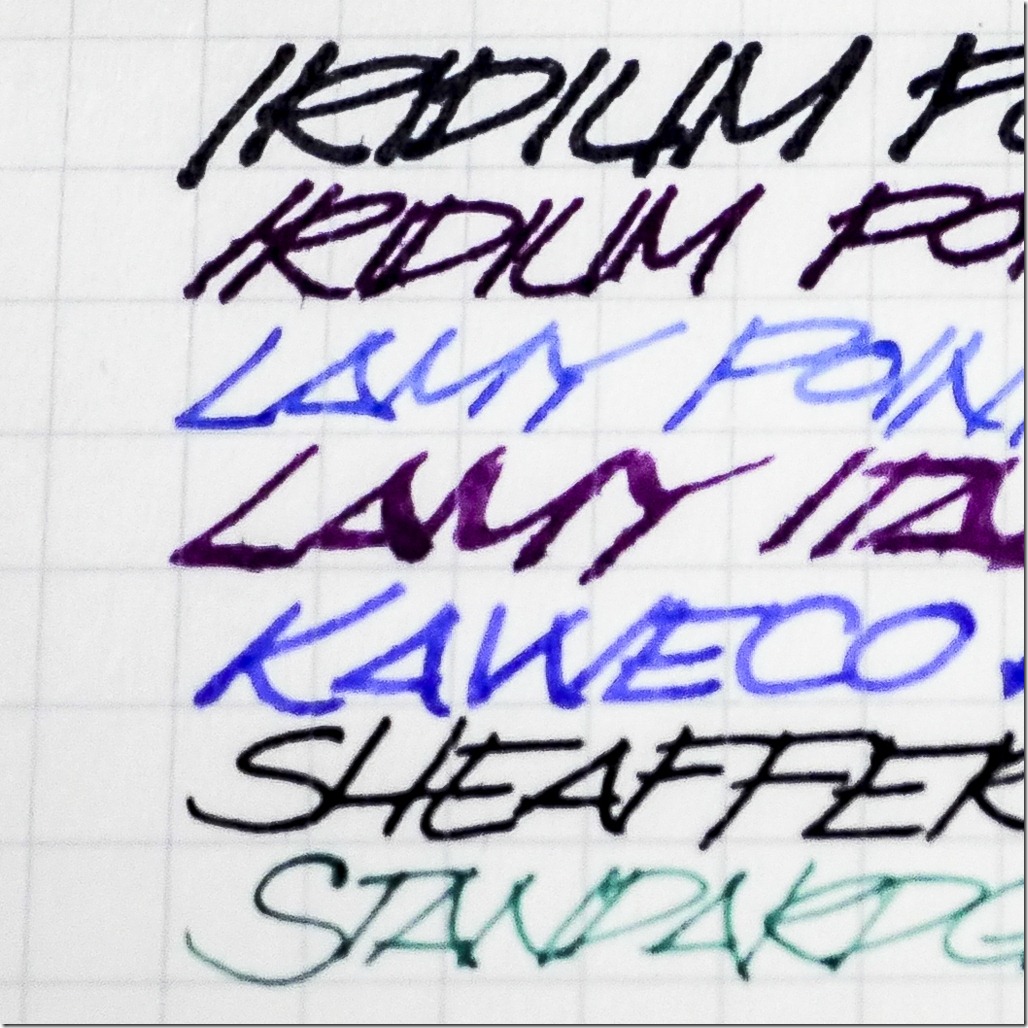 IRIDIUM PO
IRIDIUM PO
LAMY POIN
LAMY ITA
KAWECO
SHEAFFER
STANDARDG